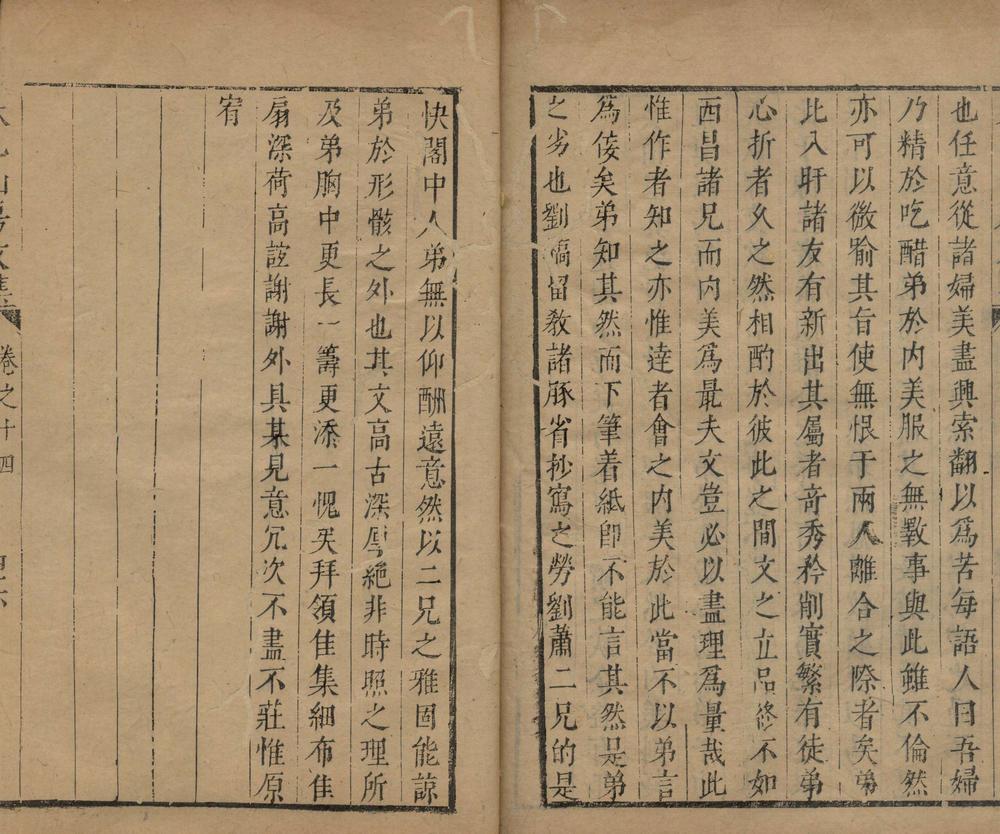 也任意從諸婦美盡興索翻以爲苦每語人曰吾婦
乃精於吃醋弟於內美服之無斁事與此雖不倫然
亦可以微喻其旨使無恨于兩人離合之際者矣弟
比入盱諸友有新出其屬者奇秀矜削實繁有徒弟
心折者久之然相酌於彼此之間文之立品終不如
西昌諸兄而內美爲最夫文豈必以盡理爲量哉此
惟作者知之亦惟達者會之內美於此當不以弟言
爲倿矣弟知其然而下筆着紙卽不能言其然是弟
之劣也劉稿留敎諸豚省抄寫之勞劉蕭二兄的是
快閣中人弟無以仰酬遠意然以二兄之雅固能諒
弟於形骸之外也其文高古深厚絶非時照之理所
及弟胸中更長一籌更添一愧矣拜領佳集細布佳
扇深荷高誼謝謝外具某見意冗次不盡不莊惟原
宥
卷之十四